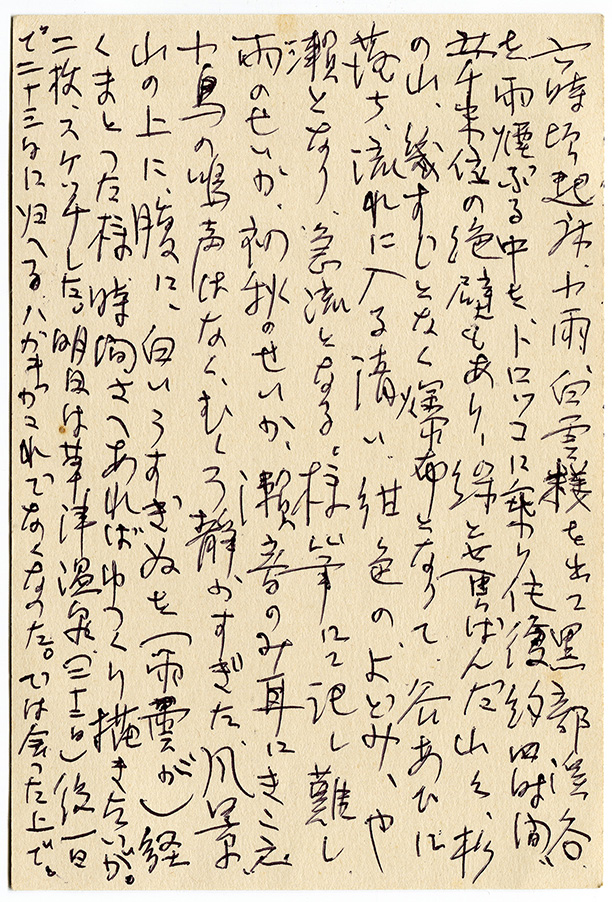 六時頃起床、小雨、白雲楼を出て黒部渓谷
を雨煙ぶる中を、トロツコに乗り往復約四時間、
千米位の絶壁もあり、緑と黄ばんだ山々、杉
の山、幾すじとなく瀑布となりて、谷あひに
落ち、流れに入る清い、紺色のよどみ、や
瀬となり、急流となる。様筆にて記し難し
雨のせいか、初秋のせいか、瀬音のみ耳にきこえ、
小鳥の鳴声はなく、むしろ静かすぎた、風景
山の上に、腹に、白いうすぎぬを(雨雲が)経
くまとつた様時間さへあればゆつくり描きたいが。
二枚、スケッチした。明日は草津温泉(二十二日)後一日
で二十三日に帰へる。ハガキがこれでなくなつた。では会つた上で。